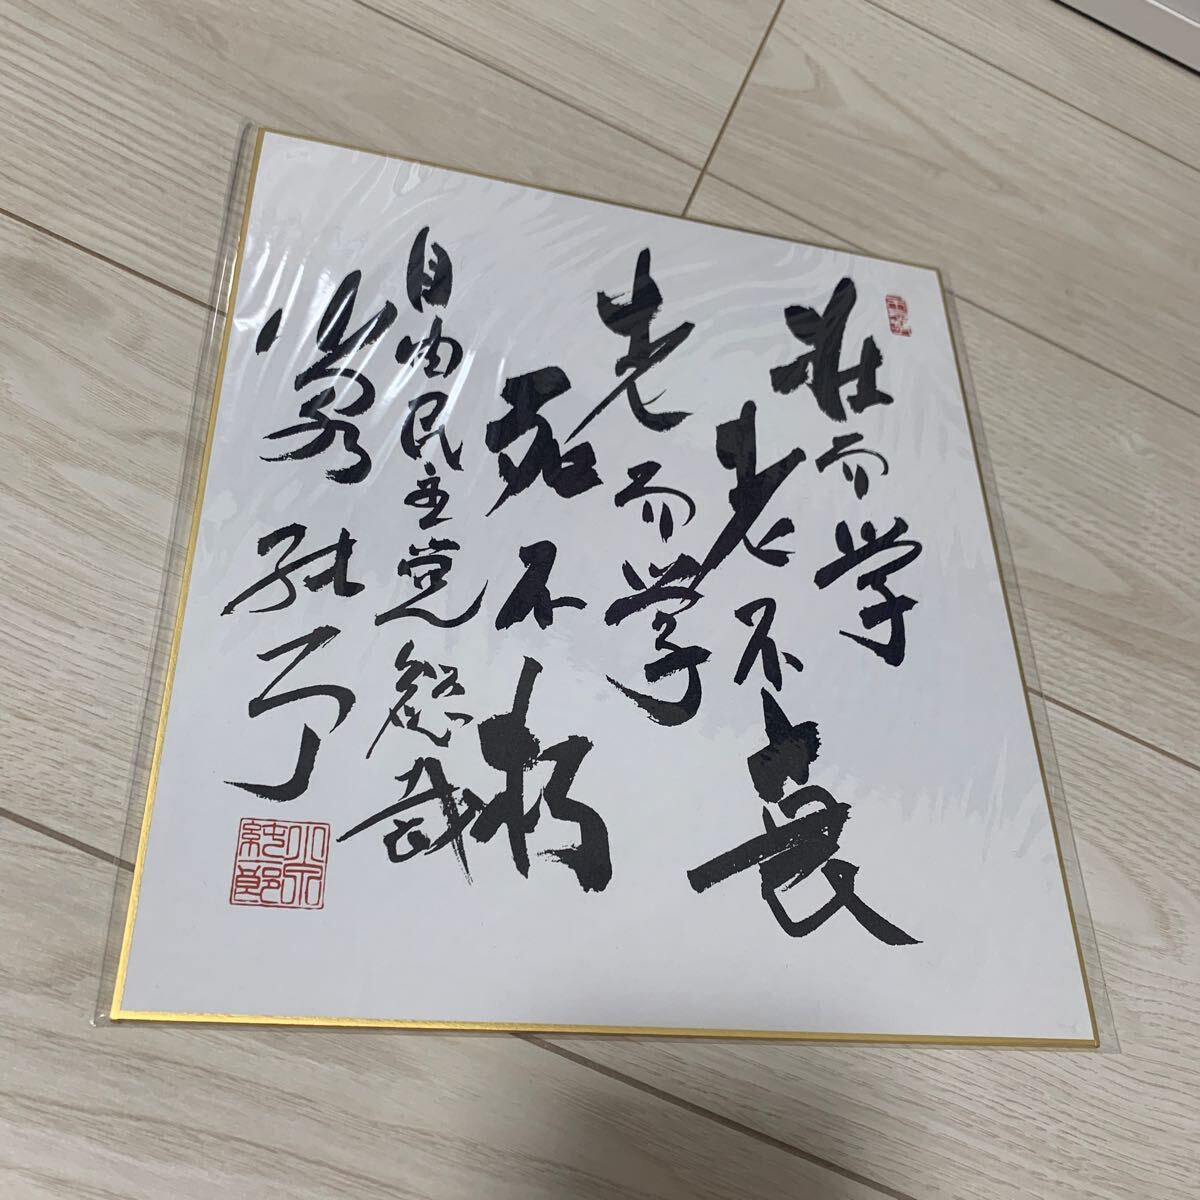 壮而学
老不衰
老而学
死不朽
自由民主党総裁
小泉純一郎
小泉
純郎